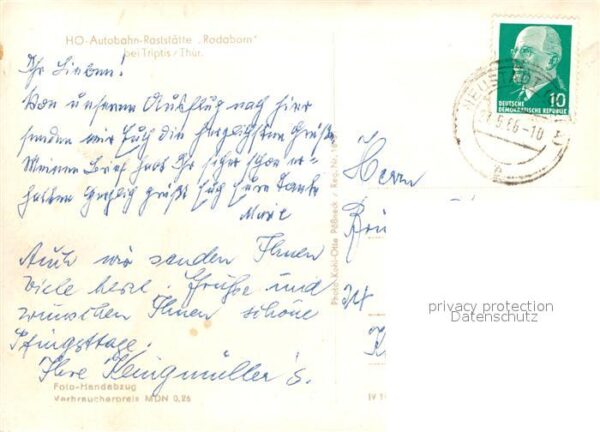 HO-Autobahn-Raststätte „Rodaborn"
bei Triptis / Thür.
Ihr Lieben!
Von unserem Ausflug nach hier
senden wir Euch die herzlichsten Grüße
Meinen Brief habt Ihr sicher schon er-
halten Herzlich grüßt Euch Eure Tante
Marie
Auch wir senden Ihnen
viele herzl. Grüße und
wünschen Ihnen schöne
Pfingsttage.
Ihre Kleinmüller's.
Foto-Handabzug
Verbraucherpreis MDN 0,26
Photo Kahl-Otto Pößneck / Reg. Nr.
IV
Herrn
10
DEUTSCHE
DEMOKRATISCHE REPUBLIK
5.66-10
privacy protection
Datenschutz